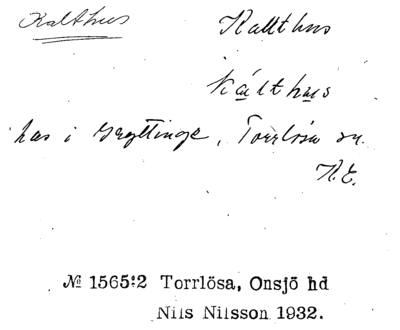 Kalthus Kallthus
kálthus
hus i Gryttinge, Torrlösa sn.
N.E.
№ 1565:2 Torrlösa, Onsjö hd
Nils Nilsson 1932.